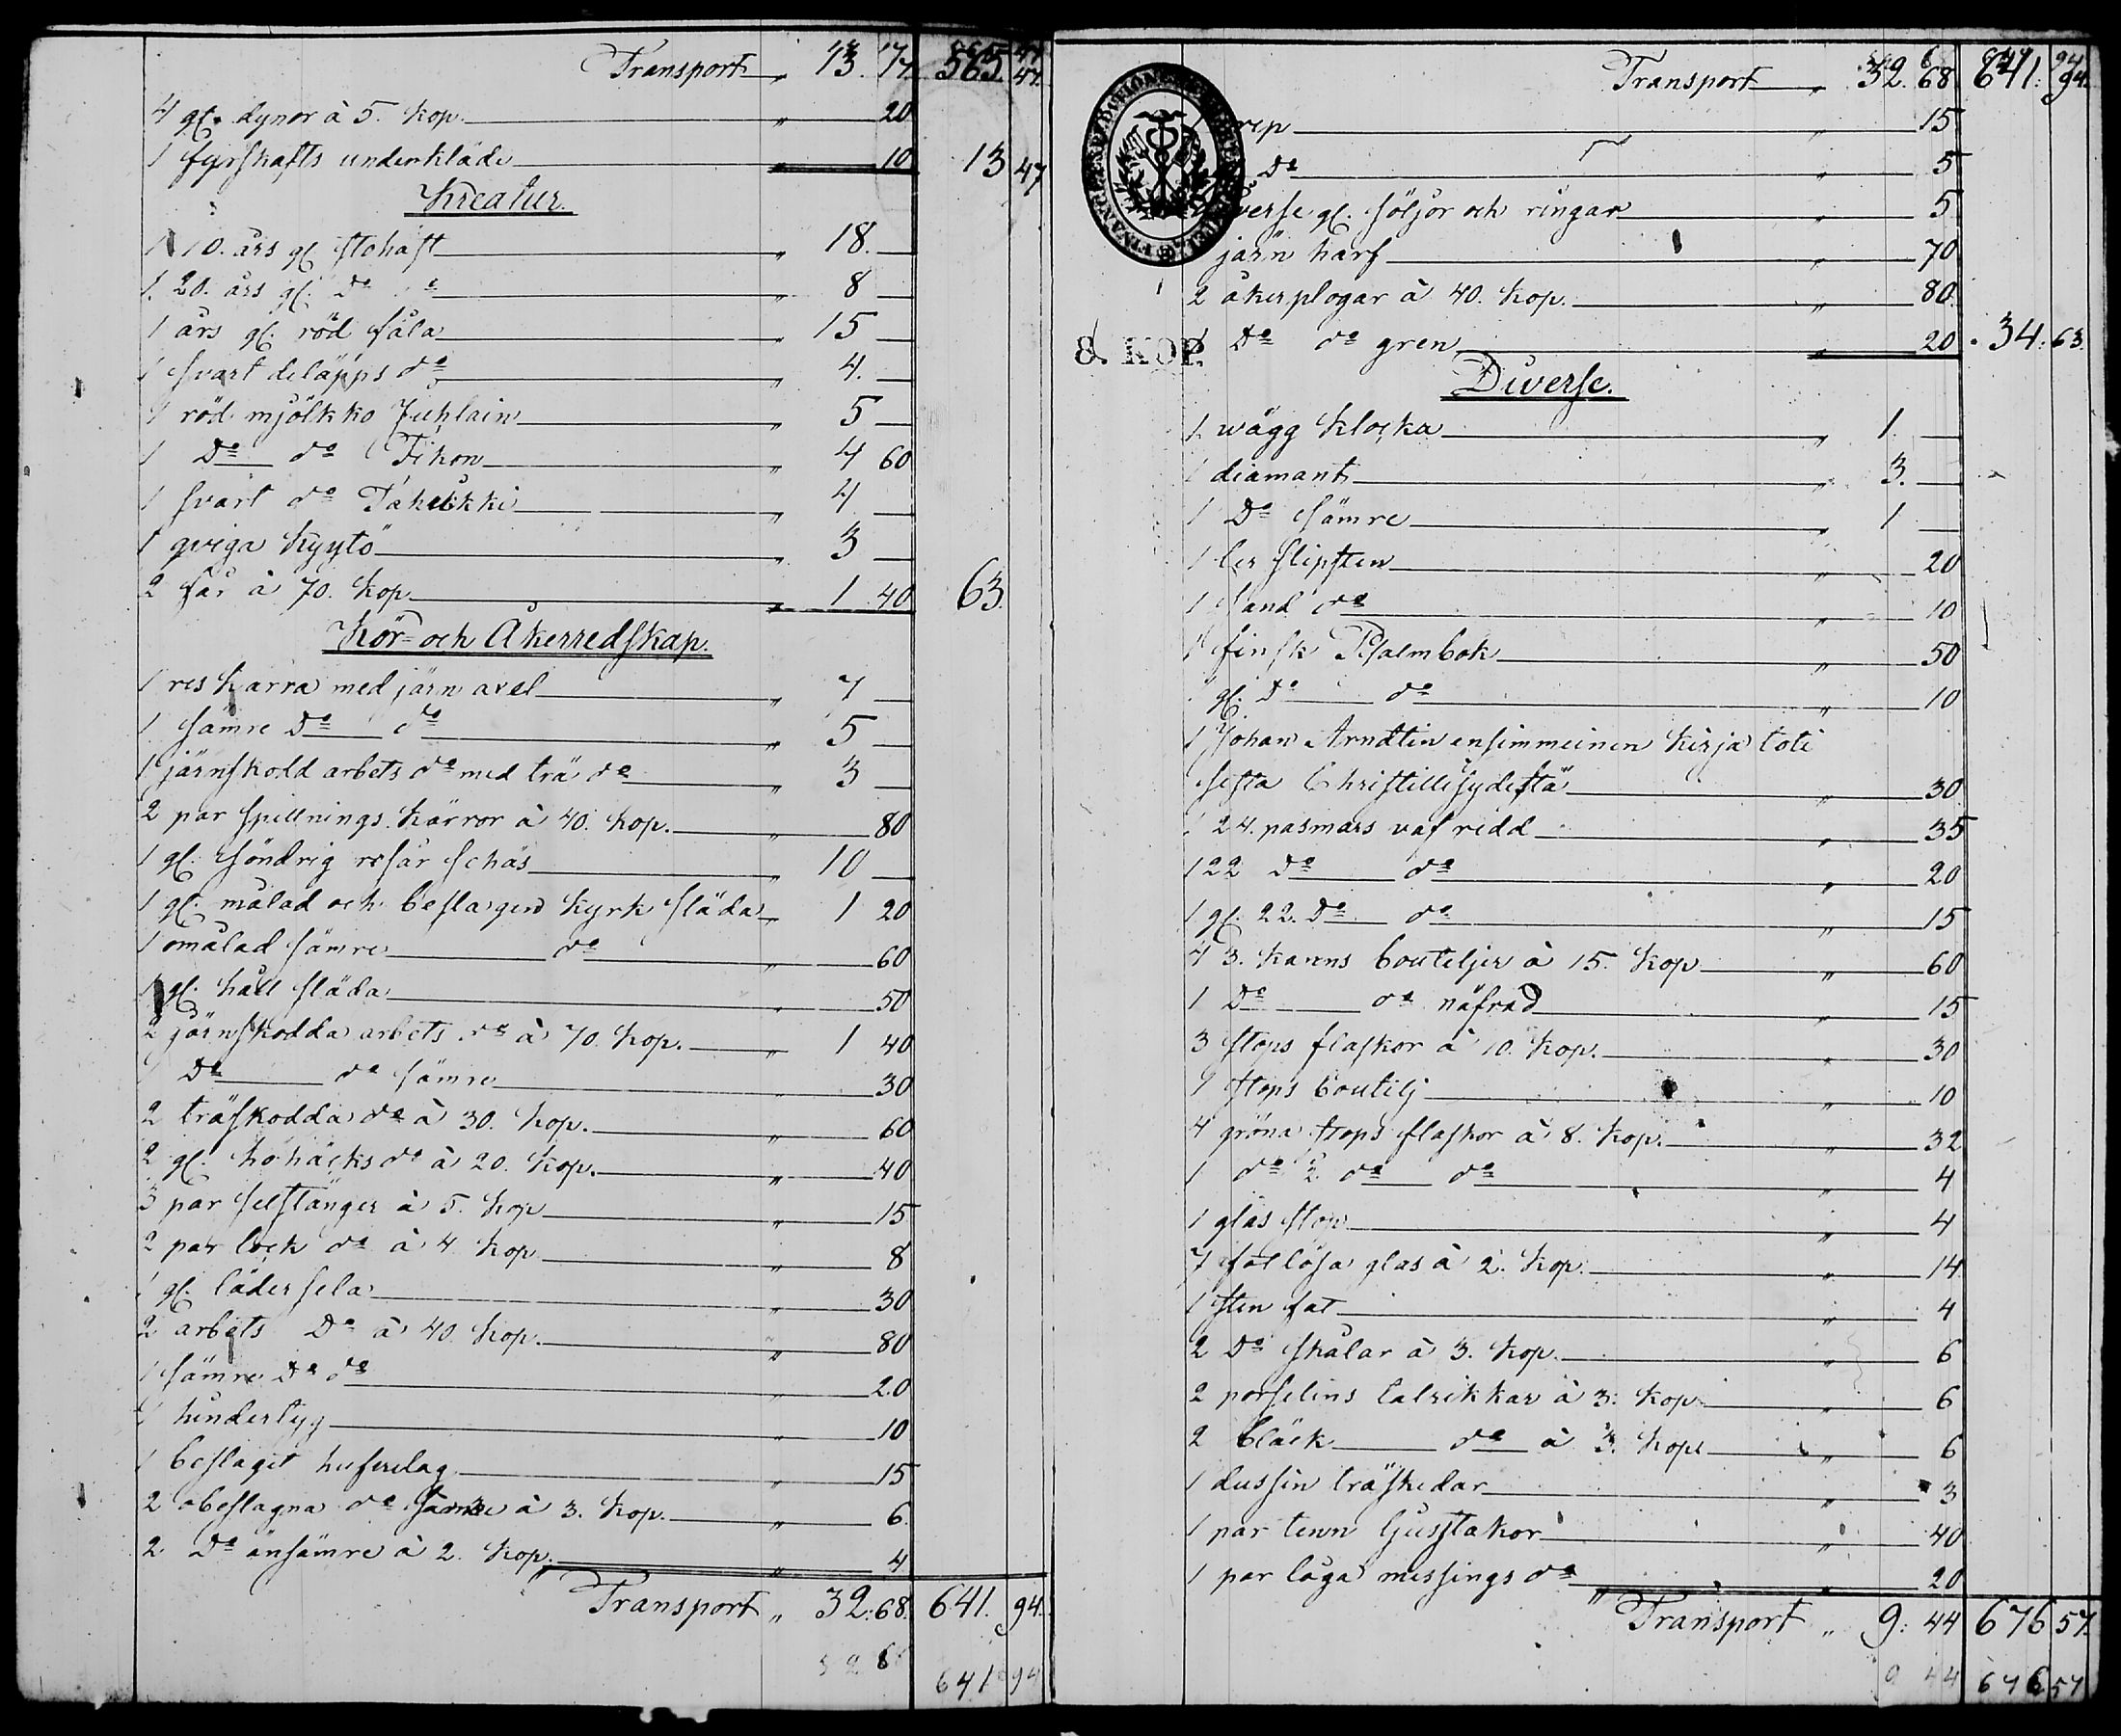 Transport „ 13. 17. 565. 47.
4 gl. dynor à 5. Kop. „ 20
1 fyrskafts underkläde „ 10 13 47
Kreatur.
1 10. års gl. stohäst „ 18. —
1. 20. års gl. do do „ 8 —
1 års gl. röd fåla „ 15 —
1 svart deläpps do „ 4. —
1 röd mjölkko Juhlain „ 5 —
1 Do do Tikon „ 4 60
1 svart do Tähikki „ 4 —
1 qviga Kyytö „ 3 —
2 får à 70. Kop. „ 1 40 63.
Kör- och Åkerredskap.
1 res kärra med järn axel „ 7 —
1 sämre Do do „ 5 —
1 järnskodd arbets do med trä do „ 3 —
2 par spillnings kärror à 40. Kop. „ 80
1 gl. söndrig resår schäs „ 10 —
1 gl. målad och beslagen kyrk släda „ 1 20
1 omålad sämre do „ 60
1 gl. håll släda „ 50
2 järnskodda arbets do à 70. Kop. „ 1 40
1 Do do sämre „ 30
2 träskodda do à 30. Kop. „ 60
2 gl. höhäcks do à 20. Kop. „ 40
3 par selstänger à 5. Kop „ 15
2 par lock do à 4 Kop „ 8
1 gl. läder sela „ 30
2 arbets Do à 40. Kop. „ 80
1 sämre Do do „ 20
1 hindertyg „ 10
1 beslagit hufvudlag „ 15
2 obeslagna do sämre à 3. Kop. „ 6.
2 Do änsämre à 2. Kop. „ 4
Transport „ 32:68. 641. 94.
32 68 641 94
Transport „ 32. 68 641. 94.
rep „ 15
Do „ 5
Diverse gl. söljor och ringar „ 5
järn harf „ 70
2 åkerplogar à 40. Kop. „ 80.
8. KOP.
1 Do do gren „ 20 34. 63.
Diverse.
1. vägg klocka „ 1. —
1 diamant „ 3. —
1 Do sämre „ 1 —
1 ler slipsten „ 20
1 sand do „ 10
1 finsk Psalmbok „ 50
1 gl. Do do „ 10
1 Johan Arndtin ensimmeinen kirja toti
sesta Christillisydestä „ 30
1 24. pasmars väf redd „ 35
1 22 Do do „ 20
1 gl. 22. Do do „ 15
4 3. kanns bouteljer à 15. Kop „ 60
1 Do do näfrad „ 15
3 stops flaskor à 10. Kop. „ 30
1 stops boutilj „ 10
4 gröna stops flaskor à 8. Kop. „ 32
1 do ½ do do „ 4
1 glas stop „ 4
7 fotlösa glas à 2. Kop. „ 14
1 sten fat „ 4
2 Do skålar à 3. Kop. „ 6
2 porselins talrikkar à 3. Kop. „ 6
2 bläck do à 3. Kop. „ 6
1 dussin träskedar „ 3
1 par tenn ljusstakor „ 40
1 par låga messings do „ 20
Transport „ 9: 44 676 57.
9 44 676 57